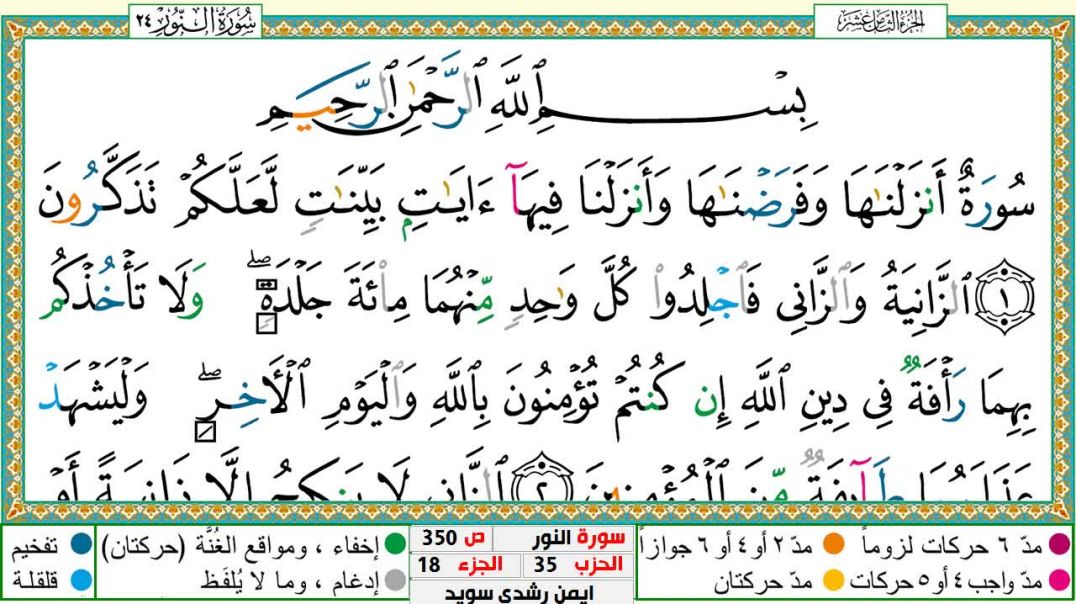 الجزء الثامن عشر
سُورَةُ النُّور ٢٤
بِسْمِ ٱللَّهِ ٱلرَّحْمَٰنِ ٱلرَّحِيمِ
سُورَةٌ أَنزَلْنَٰهَا وَفَرَضْنَٰهَا وَأَنزَلْنَا فِيهَآ ءَايَٰتٍۭ بَيِّنَٰتٍ لَّعَلَّكُمْ تَذَكَّرُونَ
١ ٱلزَّانِيَةُ وَٱلزَّانِى فَٱجْلِدُوا۟ كُلَّ وَٰحِدٍ مِّنْهُمَا مِا۟ئَةَ جَلْدَةٍ ۖ وَلَا تَأْخُذْكُم
بِهِمَا رَأْفَةٌ فِى دِينِ ٱللَّهِ إِن كُنتُمْ تُؤْمِنُونَ بِٱللَّهِ وَٱلْيَوْمِ ٱلْأَخِرِ ۖ وَلْيَشْهَدْ
عَذَابَهُمَا طَآئِفَةٌ مِّنَ ٱلْمُؤْمِنِينَ ٢ ٱلزَّانِى لَا يَنكِحُ إِلَّا زَانِيَةً أَوْ
مدّ ٦ حركات لزوماً مدّ ٢ أو ٤ أو ٦ جوازاً
مدّ واجب ٤ أو ٥ حركات مدّ حركتان
سورة النور ص 350
الحزب 35 الجزء 18
ايمن رشدي سويد
إخفاء ، ومواقع الغُنَّة (حركتان) تفخيم
إدغام ، وما لا يُلفَظ قلقلة